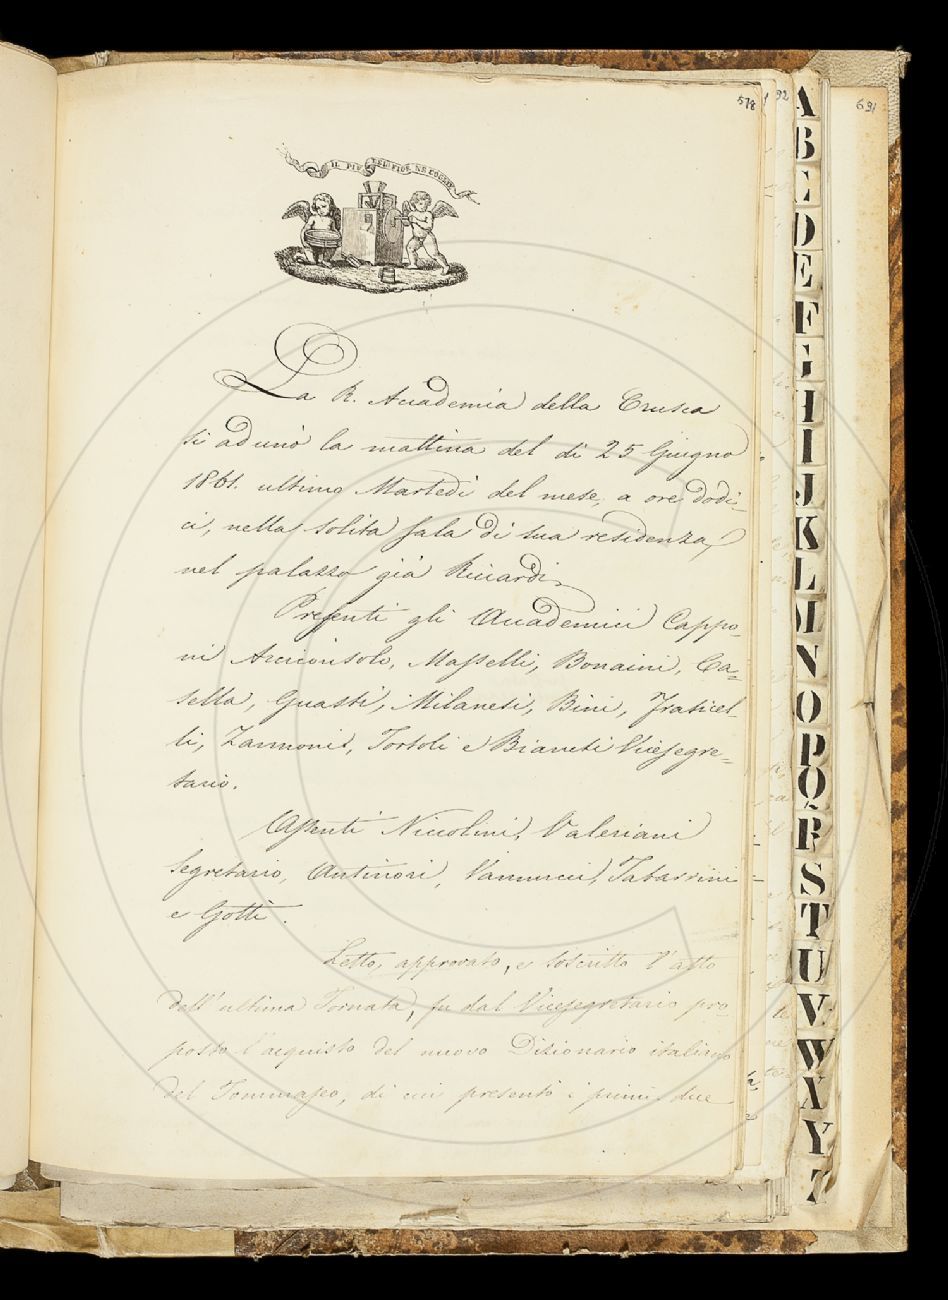 578
92
691
IL PIÙ BEL FIOR NE COGLIE
La R. Accademia della Crusca
si adunò la mattina del dì 25 Giugno
1861. ultimo Martedì del mese, a ore dodi-
ci, nella solita sala di sua residenza,
nel palazzo già Riccardi.
Presenti gli Accademici Cappo-
ni Arciconsolo, Masselli, Bonaini, Ca-
sella, Guasti, Milanesi, Bini, Fraticel-
li, Zannoni, Tortoli e Bianchi Vicesegre-
tario.
Assenti Niccolini, Valeriani
Segretario, Antinori, Vannucci, Tabarrini
e Gotti.
Letto, approvato, e soscritto l'atto
dell'ultima Tornata, fu dal Vicesegretario pro
posto l'acquisto del nuovo Dizionario italiano
del Tommaseo, di cui presentò i primi due
A
B
C
D
E
F
G
H
I
J
K
L
M
N
O
P
Q
R
S
T
U
V
W
X
Y
Z